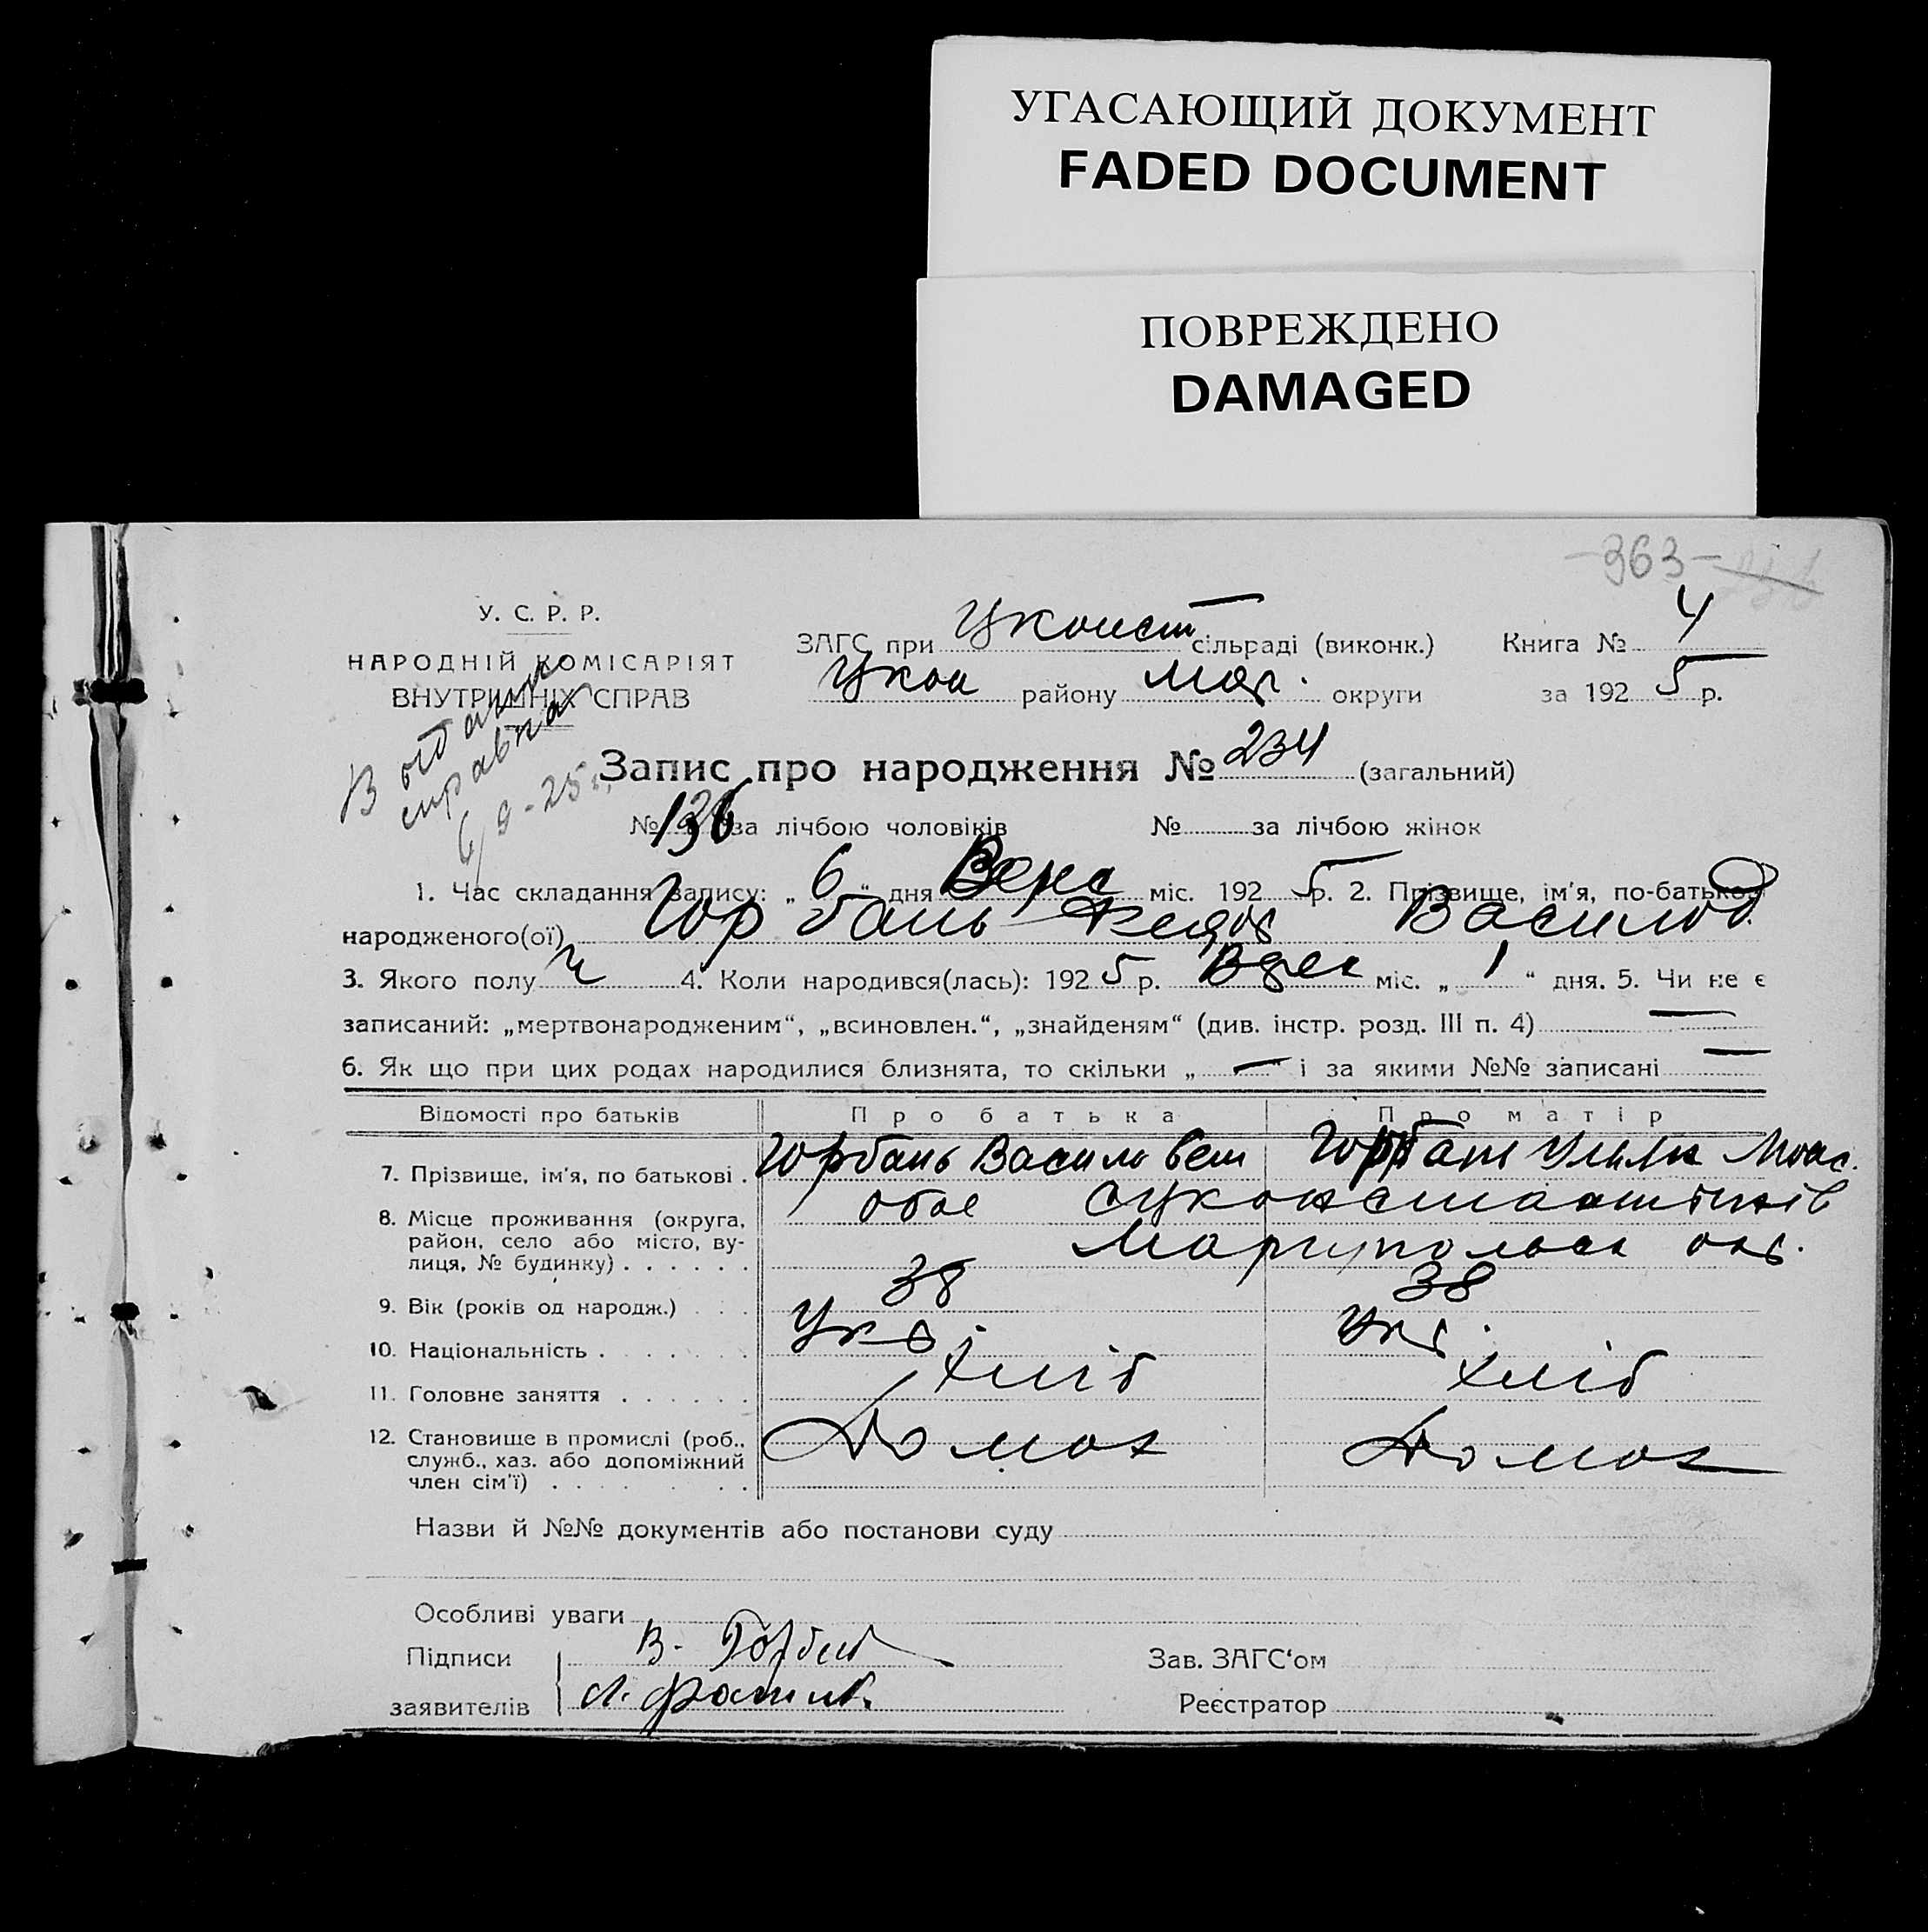 УГАСАЮЩИЙ ДОКУМЕНТ
FADED DOCUMENT
ПОВРЕЖДЕНО
DAMAGED
363
У. С. Р. Р.
НАРОДНІЙ КОМІСАРІЯТ
ВНУТРІШНІХ СПРАВ
ЗАГС при Цконст сільраді (виконк.) Книга № 4
Цкон району Мар. округи за 1925 р.
справка
6/9-25
Запис про народження № 234 (загальний)
№ 136 за лічбою чоловіків № за лічбою жінок
1. Час складання запису: „ 6 “ дня Верс міс. 1925 р. 2. Прізвище, ім'я, по-батькові
народженого(ої) Горбань Василов
3. Якого полу ч 4. Коли народився(лась): 1925 р. міс. „ 1 “ дня. 5. Чи не є
записаний: „мертвонародженим“, „всиновлен.“, „знайденям“ (див. інстр. розд. III п. 4) —
6. Як що при цих родах народилися близнята, то скільки „ — “ і за якими №№ записані —
Відомості про батьків Про батька Про матір
7. Прізвище, ім'я, по батькові . Горбань Василь Горбань
8. Місце проживання (округа, обое
район, село або місто, ву- Маріупольск окр.
лиця, № будинку) . . . . . .
9. Вік (років од народж.) . . . 38 38
10. Національність . . . . . . . Укр. Укр.
11. Головне заняття . . . . . . хліб хліб
12. Становище в промислі (роб.. Домох Домох
служб., хаз. або допоміжний
член сім'ї) . . . . . . . .
Назви й №№ документів або постанови суду
Особливі уваги
Підписи В. Зав. ЗАГС‘ом
заявителів Реєстратор